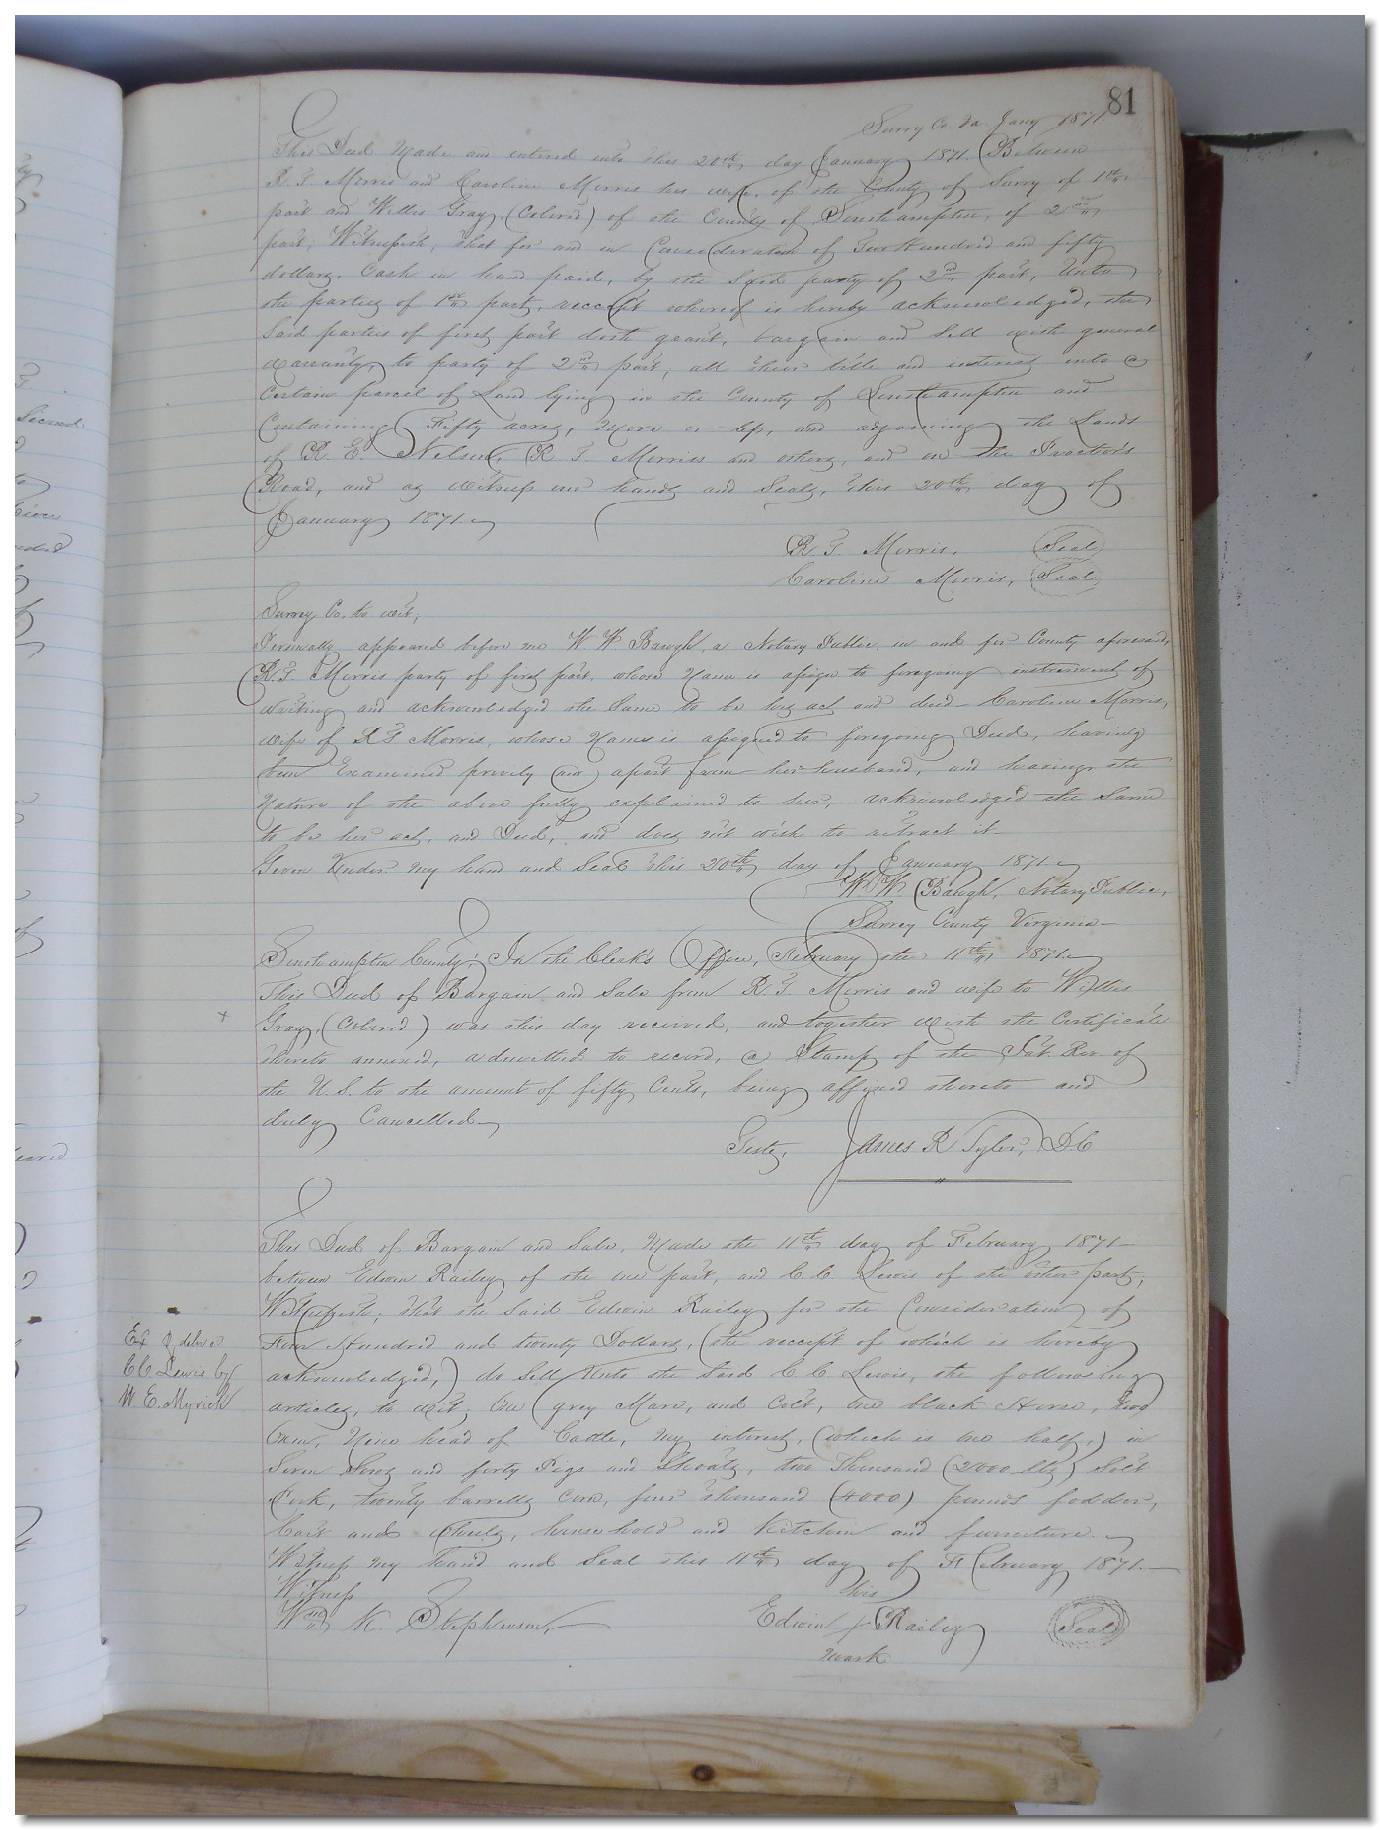 81
Surry Co. Va. Jany 1871
This Deed Made and entered into this 20th day January 1871. Between
R. T. Morris and Caroline Morris his wife, of the County of Surry of 1st
part and Willis Gray, (Colored) of the County of Southampton, of 2nd
part, Witnesseth, that for and in Consideration of Two Hundred and fifty
dollars. Cash in hand paid, by the Said party of 2nd part, Unto
the parties of 1st part, receipt whereof is hereby acknowledged, the
Said parties of first part doth grant, bargain and Sell with general
warranty, to party of 2nd part, all their title and interest into a
Certain parcel of Land lying in the County of Southampton and
Containing Fifty acres, More or less, and adjoining the Lands
of R. E. Nelson, R T Morriss and others, and on the Proctors
Road, and as witness our hands and Seals, this 20th day of
January 1871.
R T Morris. Seal
Caroline Morris, Seal
Surry Co. to wit,
Personally appeared before me W W Baugh, a Notary Public in and for County aforesaid,
R. T. Morris party of first part, whose Name is assign to foregoing instrument of
writing and acknowledged the Same to be his act and deed - Caroline Morris,
wife of R T Morris, whose Name is assigned to foregoing Deed, having
been Examined privily and apart from her husband, and having the
Nature of the above fully explained to her, acknowledged the Same
to be her act, and Deed, and does not wish to retract it -
Given Under My hand and Seal this 20th day of January 1871.
W. W. Baugh, Notary Public,
Surrey County Virginia -
Southampton County; In the Clerk's Office, February the 11th 1871.
This Deed of Bargain and Sale from R. T. Morris and wife to Willis
x Gray, (Colored) was this day received, and together with the Certificate
thereto annexed, admitted to record, a Stamp of the Int. Rev. of
the U. S. to the amount of fifty Cents, being affixed thereto and
duly Cancelled -
Teste, James R Tyler, D.C
This Deed of Bargain and Sale, Made the 11th day of February 1871 -
between Edwin Railey of the one part, and C. C. Lewis of the other part,
Witnesseth; that the Said Edwin Railey for the Consideration of
Four Hundred and twenty Dollars, (the receipt of which is hereby
acknowledged,) do Sell Unto the Said C. C. Lewis, the following
articles, to wit; One grey Mare, and Colt, one black Horse, two
Oxen, Nine head of Cattle, my interest, (which is one half,) in
Seven Sows and forty Pigs and Shoats, two Thousand (2000 lbs) Salt
Pork, twenty barrells Corn, four thousand (4000) pounds fodder,
Cart and Wheels, household and Kitchen and furniture.
Witness my hand and Seal this 11th day of February 1871. -
Ex & delivd
C C Lewis by
W E. Myrick
Witness
Wm K. Stephenson, -
his
Edwin x Railey Seal
mark